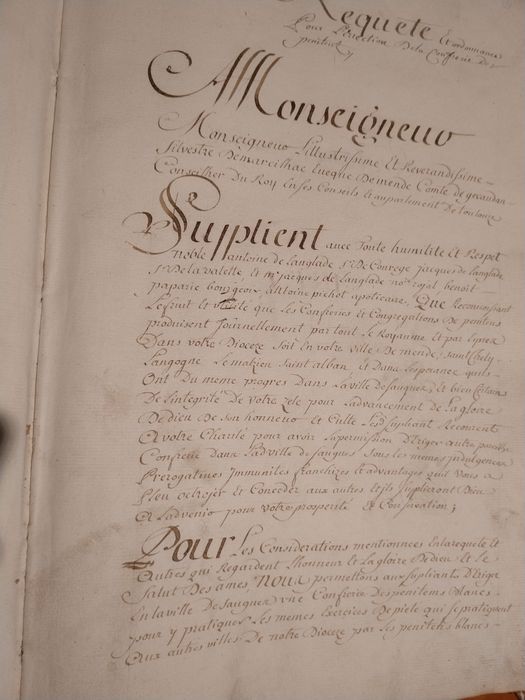 Requete Et ordonnance
Pour L'Erection De la Confrerie De
penitents
A Monseigneur
Monseigneur L'Illustrissime Et Reverandissime
Silvestre De marcilhac Eveque De mende Comte de gevaudan
Conseilher Du Roy En ses Conseils Et au parlement De Toulouze
Supplient avec Toute humilité Et Respet
noble antoine de Langlade Sr De Courege Jacques de Langlade
Sr De la Valette, et Me Jacques de Langlade nore Royal benoit
paparic bourgeois, antoine pichot apoticaire, Que Reconoissant
Le fruit et que Les Confreries et Congregations De penitens
produisent Journellement par tout Le Royaume Et par Expres
Dans votre Dioceze soit En votre ville De mende, Saint Chely
Langogne Le malzieu Saint alban, Et Dans L'esperance quils
Ont Du meme progres dans La ville de saugues, Et bien Certains
De L'integrité De votre zele pour L'advancement De La gloire
De dieu De Son honneur et Culte Lesd supliant Recourent
A votre Charité pour avoir La permission D'Eriger autre pareille
Confrerie Dans Lad ville de saugues Sous Les memes indulgences
Prerogatives Immunités franchizes Et advantages quil Vous a
Pleu octroyer Et Conceder aux autres Et ils supplieront Dieu
A Ladvenir pour votre prosperité et Conservation;
Pour Les Considerations mentionnees En la requete Et
Autres qui Regardent L'honneur Et La gloire De dieu Et Le
Salut Des ames, Nous permettons aux supliants D'Eriger
En la ville De saugues une Confrerie Des penitens blancs
pour y pratiquer Les memes Exercices De pieté qui se pratiquent
Aux autres villes De notre Dioceze par Les penitens blancs